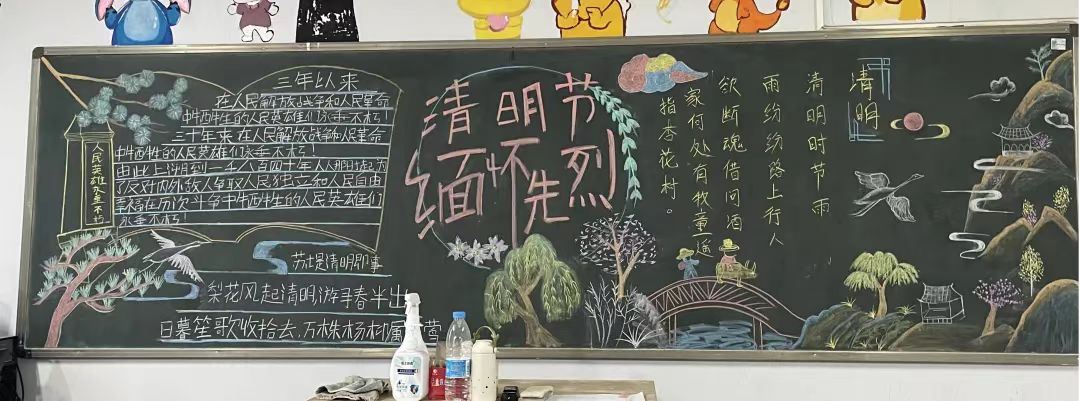 三年以来
在人民解放战争和人民革命
中牺牲的人民英雄们永垂不朽!
三十年来在人民解放战争和人民革命
中牺牲的人民英雄们永垂不朽!
由此上溯到一千八百四十年从那时起为
了反对内外敌人争取人民独立和人民自由
幸福在历次斗争中牺牲的人民英雄们
永垂不朽!
人民英雄永垂不朽
劳士是清明即事
梨花风起清明游寻春半出
日暮笙歌收拾去 万株杨柳属 莺
清明节
缅怀先烈
清明
清明时节雨
雨纷纷路上行人
欲断魂借问酒
家何处有牧童遥
指杏花村。